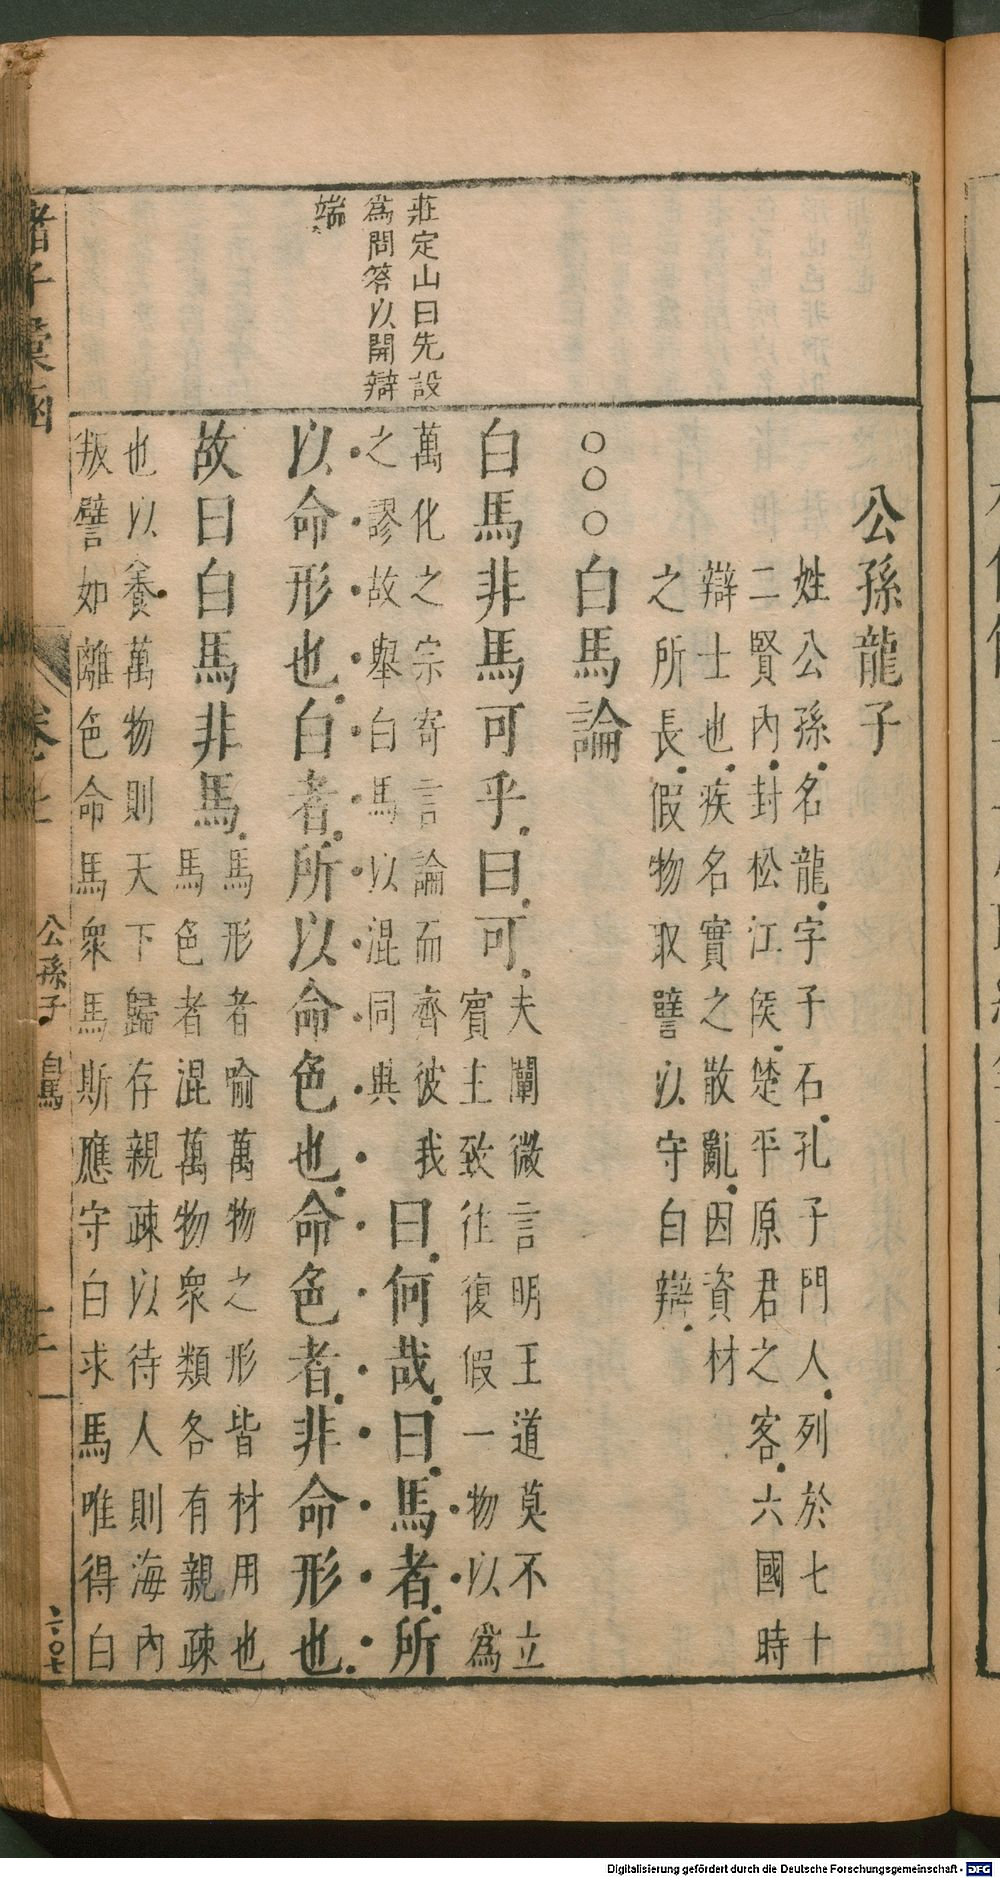 公孫龍子
姓公孫名龍字子石孔子門人列於七十
二賢內封松江侯楚平原君之客六國時
辯士也疾名實之散亂因資材
之所長假物取譬以守自辯
○○○白馬論
白馬非馬可乎曰可夫闡微言明王道莫不立
賓主致往復假一物以為
萬化之宗寄言論而齊彼我
之謬故舉白馬以混同與
曰何哉曰馬者所
以命形也白者所以命色也命色者非命形也
故曰白馬非馬馬形者喻萬物之形皆材用也
馬色者混萬物衆類各有親疎
也以養萬物則天下歸存親疎以待人則海內
叛譬如離色命馬衆馬斯應守白求馬唯得白
莊定山曰先設
為問答以開辯
端
諸子彙函
公孫子
白馬
六〇七
Digitalisierung gefördert durch die Deutsche Forschungsgemeinschaft - DFG